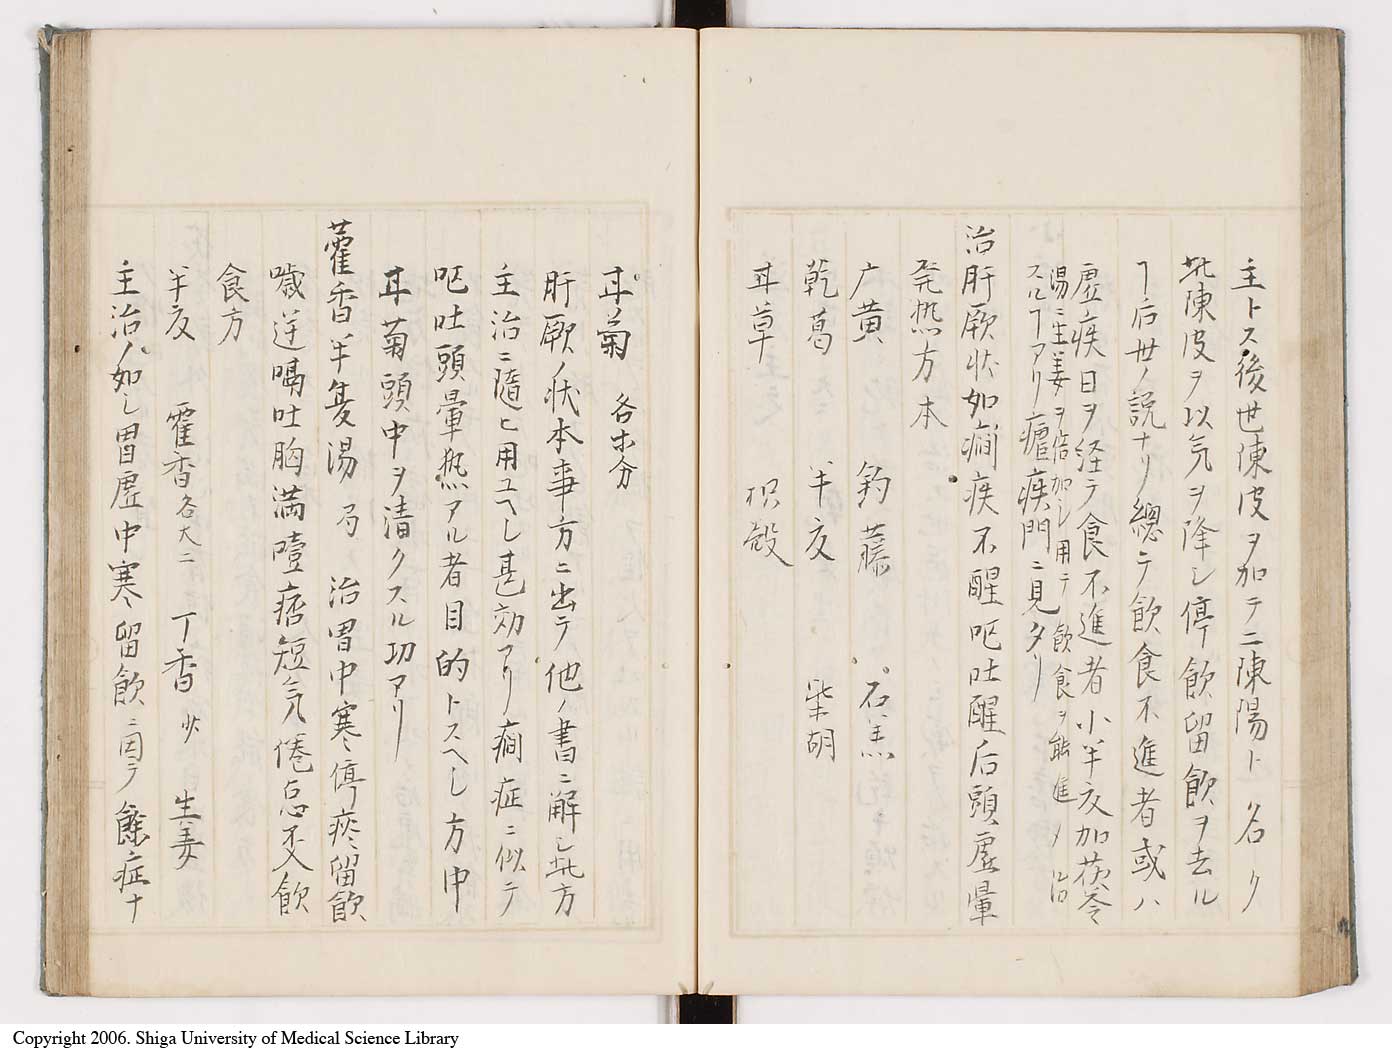 主トス後世陳皮ヲ加テ二陳陽ト名ク
此陳皮ヲ以気ヲ降シ停飲留飲ヲ去ル
ヿ后世ノ説ナリ總テ飲食不進者或ハ
虚疾日ヲ経テ食不進者小半夏加茯苓
湯ニ生姜ヲ倍加シ用テ飲食ヲ能進ヲ治
スルヿアリ瘧疾門ニ見タリ
治肝厥状如癇疾不醒呕吐醒后頭虚暈
発熱方本
广黄 釣藤 石羔
乾葛 半夏 柴胡
甘草 枳殻
甘菊 各ホ分
肝厥ノ状本事方ニ出テ他ノ書ニ解シ此方
主治ニ随ヒ用ユヘし甚効アリ癇症ニ似テ
呕吐頭暈熱アル者目的トスヘし方中
甘菊頭中ヲ清クスル功アリ
藿香半夏湯 局 治胃中寒停痰留飲
噦逆嘔吐胸満噎痞短気倦怠不入飲
食方
半夏 藿香各大二 丁香少 生姜
主治ノ如し胃虚中寒留飲ニ因テ餘症ナ